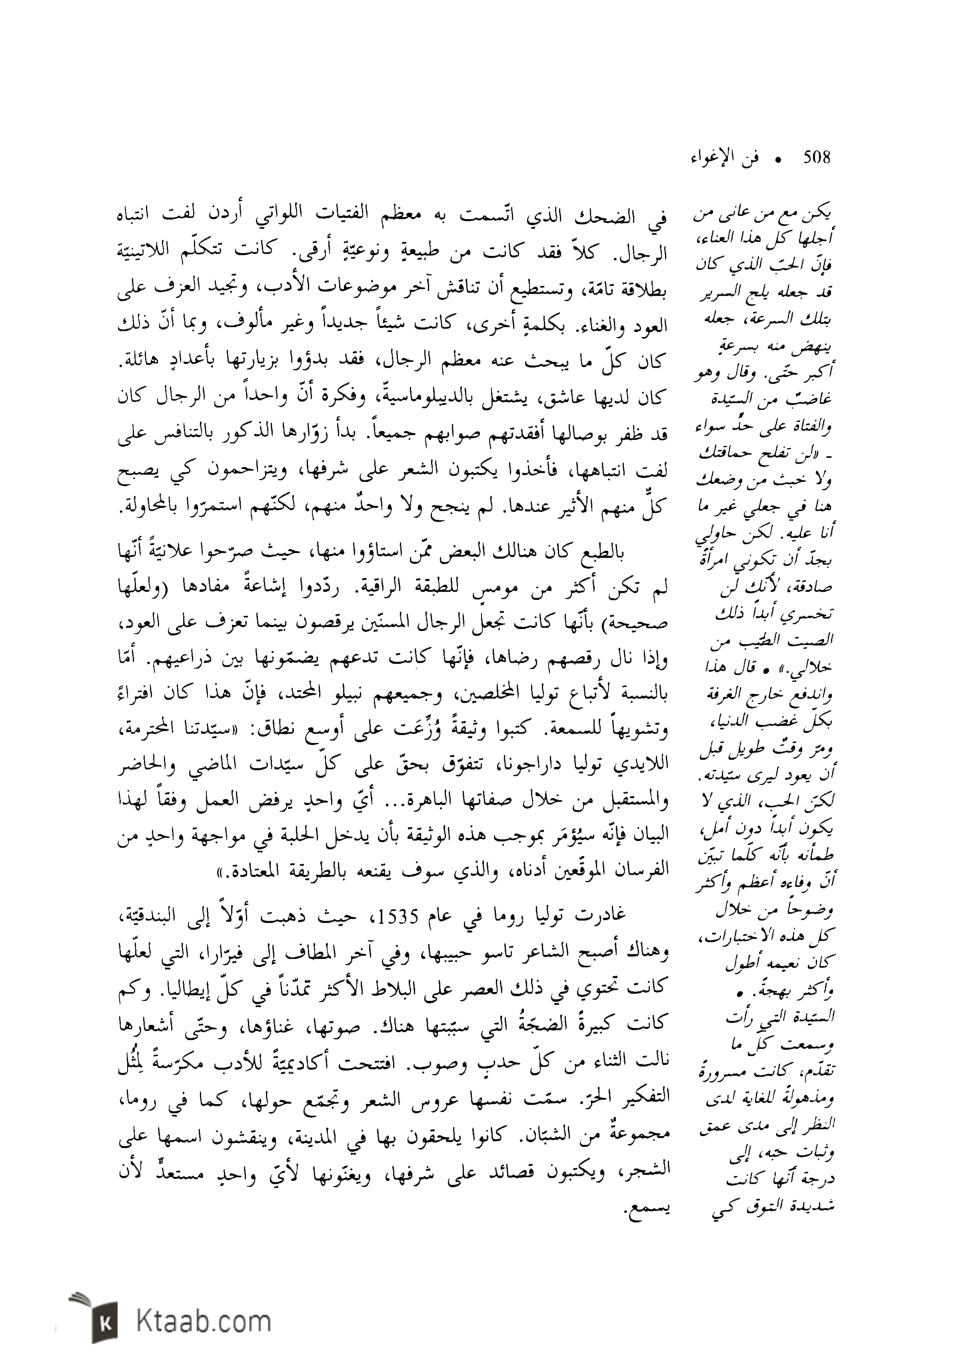 508 • فن الإغواء
يكن مع من عانى من
أجلها كل هذا العناء،
فإنّ الحبّ الذي كان
قد جعله يلج السرير
بتلك السرعة، جعله
ينهض منه بسرعةٍ
أكبر حتّى. وقال وهو
غاضبٌ من السيّدة
والفتاة على حدٍّ سواء
ـ «لن تفلح حماقتك
ولا خبث من وضعك
هنا في جعلي غير ما
أنا عليه. لكن حاولي
بجدّ أن تكوني امرأةً
صادقة، لأنّك لن
تخسري أبداً ذلك
الصيت الطيّب من
خلالي.» • قال هذا
واندفع خارج الغرفة
بكلّ غضب الدنيا،
ومرّ وقتٌ طويل قبل
أن يعود ليرى سيّدته.
لكنّ الحب، الذي لا
يكون أبداً دون أمل،
طمأنه بأنّه كلّما تبيّن
أنّ وفاءه أعظم وأكثر
وضوحاً من خلال
كل هذه الاختبارات،
كان نعيمه أطول
وأكثر بهجةً. •
السيّدة التي رأت
وسمعت كلّ ما
تقدّم، كانت مسرورةً
ومذهولةً للغاية لدى
النظر إلى مدى عمق
وثبات حبّه، إلى
درجة أنّها كانت
شديدة التوق كي
في الضحك الذي اتّسمت به معظم الفتيات اللواتي أردن لفت انتباه
الرجال. كلاّ فقد كانت من طبيعةٍ ونوعيّةٍ أرقى. كانت تتكلّم اللاتينيّة
بطلاقة تامّة، وتستطيع أن تناقش آخر موضوعات الأدب، وتجيد العزف على
العود والغناء. بكلمةٍ أخرى، كانت شيئاً جديداً وغير مألوف، وبما أنّ ذلك
كان كلّ ما يبحث عنه معظم الرجال، فقد بدؤوا بزيارتها بأعدادٍ هائلة.
كان لديها عاشق، يشتغل بالديبلوماسيةّ، وفكرة أنّ واحداً من الرجال كان
قد ظفر بوصالها أفقدتهم صوابهم جميعاً. بدأ زوّارها الذكور بالتنافس على
لفت انتباهها، فأخذوا يكتبون الشعر على شرفها، ويتزاحمون كي يصبح
كلٌّ منهم الأثير عندها. لم ينجح ولا واحدٌ منهم، لكنّهم استمرّوا بالمحاولة.
بالطبع كان هنالك البعض ممّن استاؤوا منها، حيث صرّحوا علانيّةً أنّها
لم تكن أكثر من مومسٍ للطبقة الراقية. ردّدوا إشاعةً مفادها (ولعلّها
صحيحة) بأنّها كانت تجعل الرجال المسنّين يرقصون بينما تعزف على العود،
وإذا نال رقصهم رضاها، فإنّها كانت تدعهم يضمّونها بين ذراعيهم. أمّا
بالنسبة لأتباع توليا المخلصين، وجميعهم نبيلو المحتد، فإنّ هذا كان افتراءً
وتشويهاً للسمعة. كتبوا وثيقةً وُزِّعَت على أوسع نطاق: «سيّدتنا المحترمة،
اللايدي توليا داراجونا، تتفوّق بحقّ على كلّ سيّدات الماضي والحاضر
والمستقبل من خلال صفاتها الباهرة... أيّ واحدٍ يرفض العمل وفقاً لهذا
البيان فإنّه سيُؤمَر بموجب هذه الوثيقة بأن يدخل الحلبة في مواجهة واحدٍ من
الفرسان الموقّعين أدناه، والذي سوف يقنعه بالطريقة المعتادة.»
غادرت توليا روما في عام 1535، حيث ذهبت أوّلاً إلى البندقيّة،
وهناك أصبح الشاعر تاسو حبيبها، وفي آخر المطاف إلى فيرّارا، التي لعلّها
كانت تحتوي في ذلك العصر على البلاط الأكثر تمدّناً في كلّ إيطاليا. وكم
كانت كبيرةً الضجّةُ التي سبّبتها هناك. صوتها، غناؤها، وحتّى أشعارها
نالت الثناء من كلّ حدبٍ وصوب. افتتحت أكاديميّةً للأدب مكرّسةً لِمُثُل
التفكير الحرّ. سمّت نفسها عروس الشعر وتجمّع حولها، كما في روما،
مجموعةٌ من الشبّان. كانوا يلحقون بها في المدينة، وينقشون اسمها على
الشجر، ويكتبون قصائد على شرفها، ويغنّونها لأيّ واحدٍ مستعدٍّ لأن
يسمع.
Ktaab.com